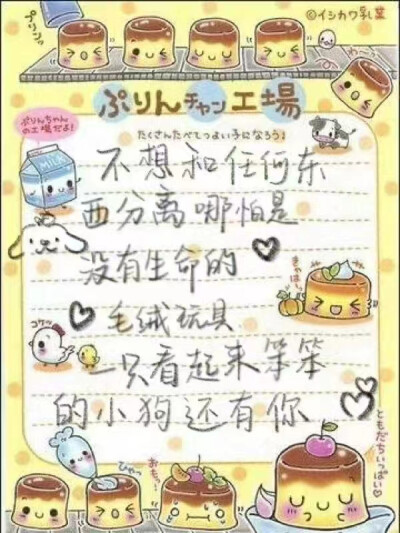 ©イシカワ乳業
プリン
ぷりんチャン工場
たくさんたべてつよい子になろう♪
ぷりんちゃんの工場だよ!
MILK
不想和任何东
西分离哪怕是
没有生命的
毛绒玩具
コケッ
一只看起来笨笨
的小狗还有你
ともだちいっぱい♡
ひゃっ
おもっ